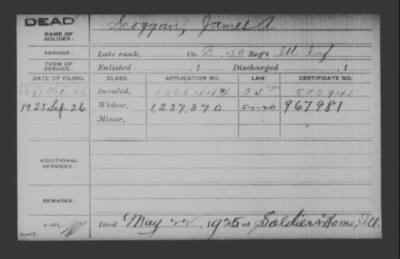 DEAD
NAME OF SOLDIER: Scoggan, James A
SERVICE: Late rank, Co. B, 30 Reg't Ill. Inf
TERM OF SERVICE: Enlisted , 1 Discharged , 1
DATE OF FILING. CLASS. APPLICATION NO. LAW. CERTIFICATE NO.
1891 Invalid,
1925 Sep. 26 Widow, 1,237,370 5-1-20 967981
Minor,
ADDITIONAL SERVICES:
REMARKS:
Died May 22, 1925 at Soldiers Home, Ill.